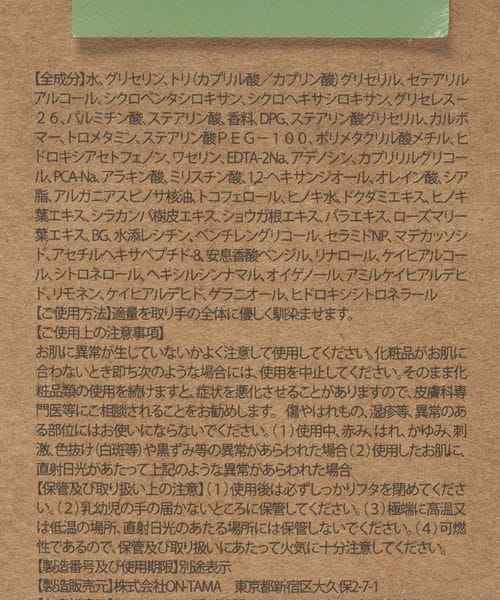 【全成分】水、グリセリン、トリ(カプリル酸／カプリン酸)グリセリル、セテアリル
アルコール、シクロペンタシロキサン、シクロヘキサシロキサン、グリセレス－
２６、パルミチン酸、ステアリン酸、香料、DPG、ステアリン酸グリセリル、カルボ
マー、トロメタミン、ステアリン酸ＰＥＧ－１００、ポリメタクリル酸メチル、ヒ
ドロキシアセトフェノン、ワセリン、EDTA-2Na、アデノシン、カプリリルグリコー
ル、PCA-Na、アラキン酸、ミリスチン酸、1,2-ヘキサンジオール、オレイン酸、シア
脂、アルガニアスピノサ核油、トコフェロール、ヒノキ水、ドクダミエキス、ヒノキ
葉エキス、シラカンバ樹皮エキス、ショウガ根エキス、バラエキス、ローズマリー
葉エキス、BG、水添レシチン、ペンチレングリコール、セラミドNP、マデカッソシ
ド、アセチルヘキサペプチド-8、安息香酸ベンジル、リナロール、ケイヒアルコー
ル、シトロネロール、ヘキシルシンナマル、オイゲノール、アミルケイヒアルデヒ
ド、リモネン、ケイヒアルデヒド、ゲラニオール、ヒドロキシシトロネラール
【ご使用方法】適量を取り手の全体に優しく馴染ませます。
【ご使用上の注意事項】
お肌に異常が生じていないかよく注意して使用してください。化粧品がお肌に
合わないとき即ち次のような場合には、使用を中止してください。そのまま化
粧品類の使用を続けますと、症状を悪化させることがありますので、皮膚科専
門医等にご相談されることをお勧めします。傷やはれもの、湿疹等、異常のあ
る部位にはお使いにならないでください。（１）使用中、赤み、はれ、かゆみ、刺
激、色抜け(白斑等)や黒ずみ等の異常があらわれた場合（２）使用したお肌に、
直射日光があたって上記のような異常があらわれた場合
【保管及び取り扱い上の注意】（１）使用後は必ずしっかりフタを閉めてくださ
い。（２）乳幼児の手の届かないところに保管してください。（３）極端に高温又
は低温の場所、直射日光のあたる場所には保管しないでください。（４）可燃
性であるので、保管及び取り扱いにあたって火気に十分注意してください。
【製造番号及び使用期限】別途表示
【製造販売元】株式会社ON-TAMA　東京都新宿区大久保2-7-1